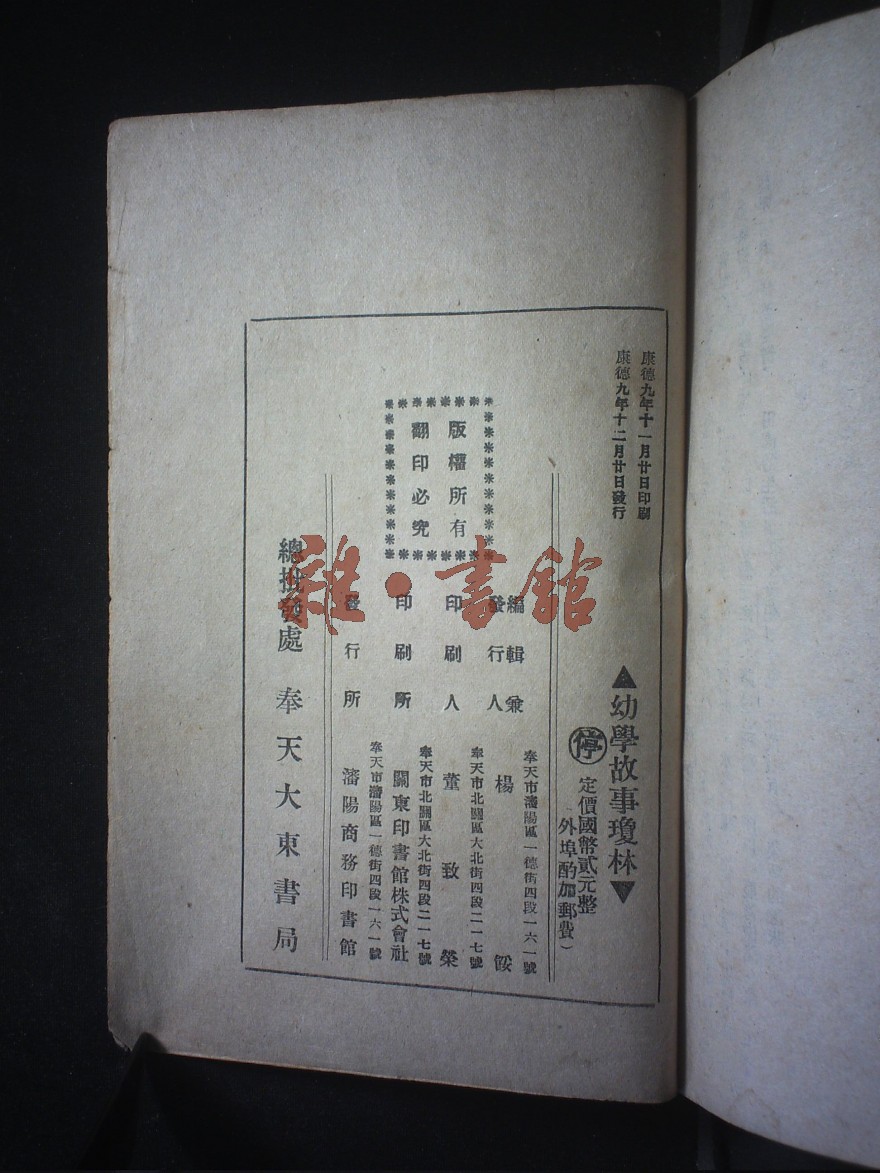 康德九年十一月廿日印刷
康德九年十二月廿日發行
▲幼學故事瓊林▼
停
定價國幣貳元整
外埠酌加郵費）
版權所有
翻印必究
編輯兼
發行人
奉天市瀋陽區一德街四段一六一號
楊餒
印刷人
奉天市北關區大北街四段二一七號
董致榮
印刷所
奉天市北關區大北街四段二一七號
關東印書館株式會社
發行所
奉天市瀋陽區一德街四段一六一號
瀋陽商務印書館
總批發處 奉天大東書局
雜·書館